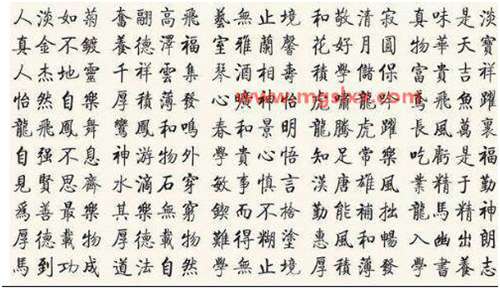 人淡如菊 奮翮高飛 藝無止境 和敬清寂 真味是淡
真金不鍍 養德澤福 室雅蘭馨 花好月圓 物華天寶
人杰地靈 千祥雲集 琴酒相壽 學儲保 富貴吉祥
怡然自樂 厚積薄發 心曠神怡 虎嘯龍 鳶飛魚躍
龍飛鳳舞 鸞鳳和鳴 春和景明 龍騰虎躍 長風萬裏
自强不息 神游物外 學貴心悟 知足常樂 吃虧是福
見賢思齊 水滴石穿 敏事慎言 漢唐雄風 業精于勤
爲善最樂 其樂無窮 鍥而不捨 勤能補拙 龍馬精神
厚德載物 厚德載物 難得糊塗 惠風和暢 入幽出朗
馬到功成 道法自然 學無止境 厚積薄發 學書養志